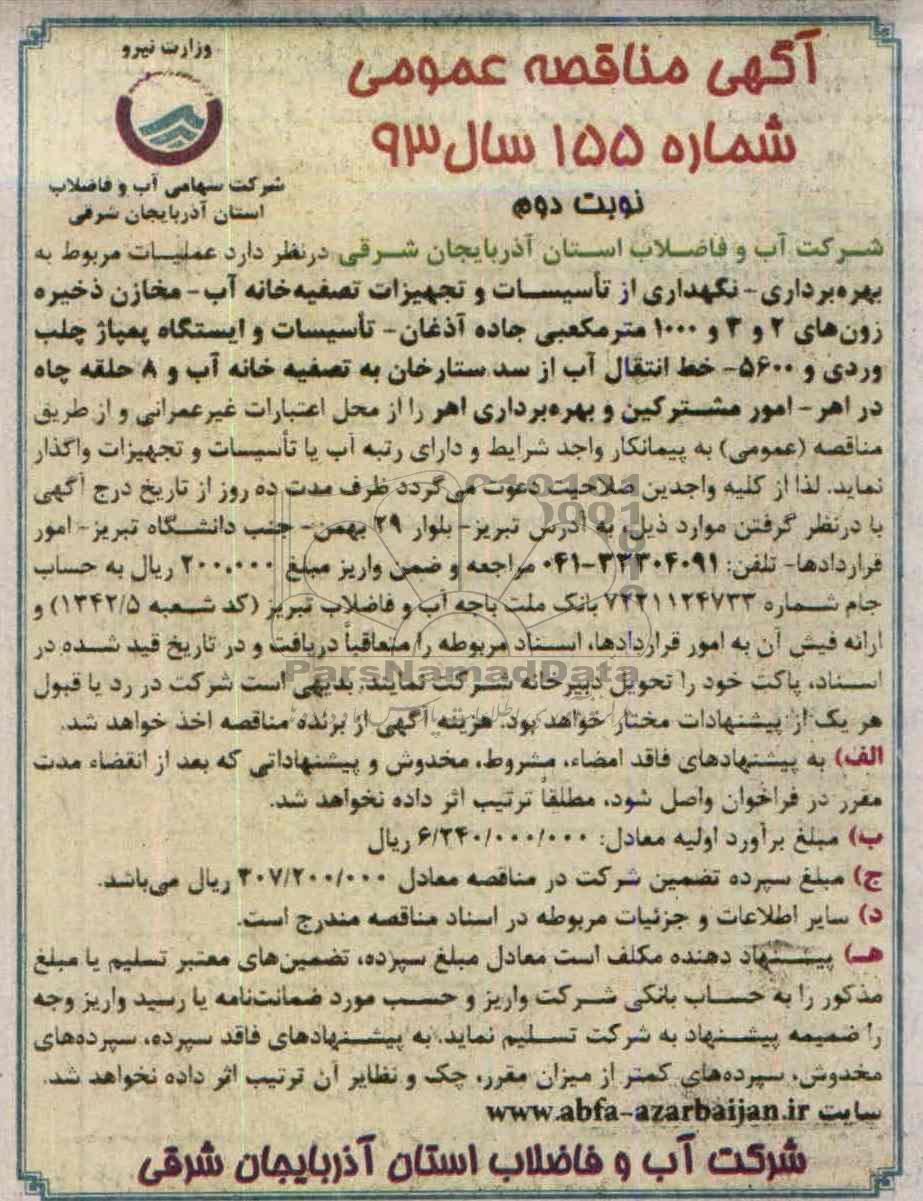 وزارت نیرو
شرکت سهامی آب و فاضلاب
استان آذربایجان شرقی
آگهی مناقصه عمومی
شماره ۱۵۵ سال ۹۳
نوبت دوم
شرکت آب و فاضلاب استان آذربایجان شرقی درنظر دارد عملیات مربوط به
بهره‌برداری- نگهداری از تأسیسات و تجهیزات تصفیه‌خانه آب- مخازن ذخیره
زون‌های ۲ و ۳ و ۱۰۰۰ مترمکعبی جاده آذغان- تأسیسات و ایستگاه پمپاژ چلب
وردی و ۵۶۰۰- خط انتقال آب از سد ستارخان به تصفیه خانه آب و ۸ حلقه چاه
در اهر- امور مشترکین و بهره‌برداری اهر را از محل اعتبارات غیرعمرانی و از طریق
مناقصه (عمومی) به پیمانکار واجد شرایط و دارای رتبه آب یا تأسیسات و تجهیزات واگذار
نماید. لذا از کلیه واجدین صلاحیت دعوت می‌گردد ظرف مدت ده روز از تاریخ درج آگهی
با درنظر گرفتن موارد ذیل، به آدرس تبریز- بلوار ۲۹ بهمن- جنب دانشگاه تبریز- امور
قراردادها- تلفن: ۳۳۳۰۴۰۹۱-۰۴۱ مراجعه و ضمن واریز مبلغ ۲۰۰.۰۰۰ ریال به حساب
جام شماره ۷۴۲۱۱۲۴۷۳۳ بانک ملت باجه آب و فاضلاب تبریز (کد شعبه ۱۳۴۲/۵) و
ارائه فیش آن به امور قراردادها، اسناد مربوطه را متعاقباً دریافت و در تاریخ قید شده در
اسناد، پاکت خود را تحویل دبیرخانه شرکت نمایند. بدیهی است شرکت در رد یا قبول
هر یک از پیشنهادات مختار خواهد بود. هزینه آگهی از برنده مناقصه اخذ خواهد شد.
الف) به پیشنهادهای فاقد امضاء، مشروط، مخدوش و پیشنهاداتی که بعد از انقضاء مدت
مقرر در فراخوان واصل شود، مطلقاً ترتیب اثر داده نخواهد شد.
ب) مبلغ برآورد اولیه معادل: ۶/۲۴۰/۰۰۰/۰۰۰ ریال
ج) مبلغ سپرده تضمین شرکت در مناقصه معادل ۳۰۷/۲۰۰/۰۰۰ ریال می‌باشد.
د) سایر اطلاعات و جزئیات مربوطه در اسناد مناقصه مندرج است.
هـ) پیشنهاد دهنده مکلف است معادل مبلغ سپرده، تضمین‌های معتبر تسلیم یا مبلغ
مذکور را به حساب بانکی شرکت واریز و حسب مورد ضمانت‌نامه یا رسید واریز وجه
را ضمیمه پیشنهاد به شرکت تسلیم نماید. به پیشنهادهای فاقد سپرده، سپرده‌های
مخدوش، سپرده‌های کمتر از میزان مقرر، چک و نظایر آن ترتیب اثر داده نخواهد شد.
سایت www.abfa-azarbaijan.ir
شرکت آب و فاضلاب استان آذربایجان شرقی
ParsNamadData